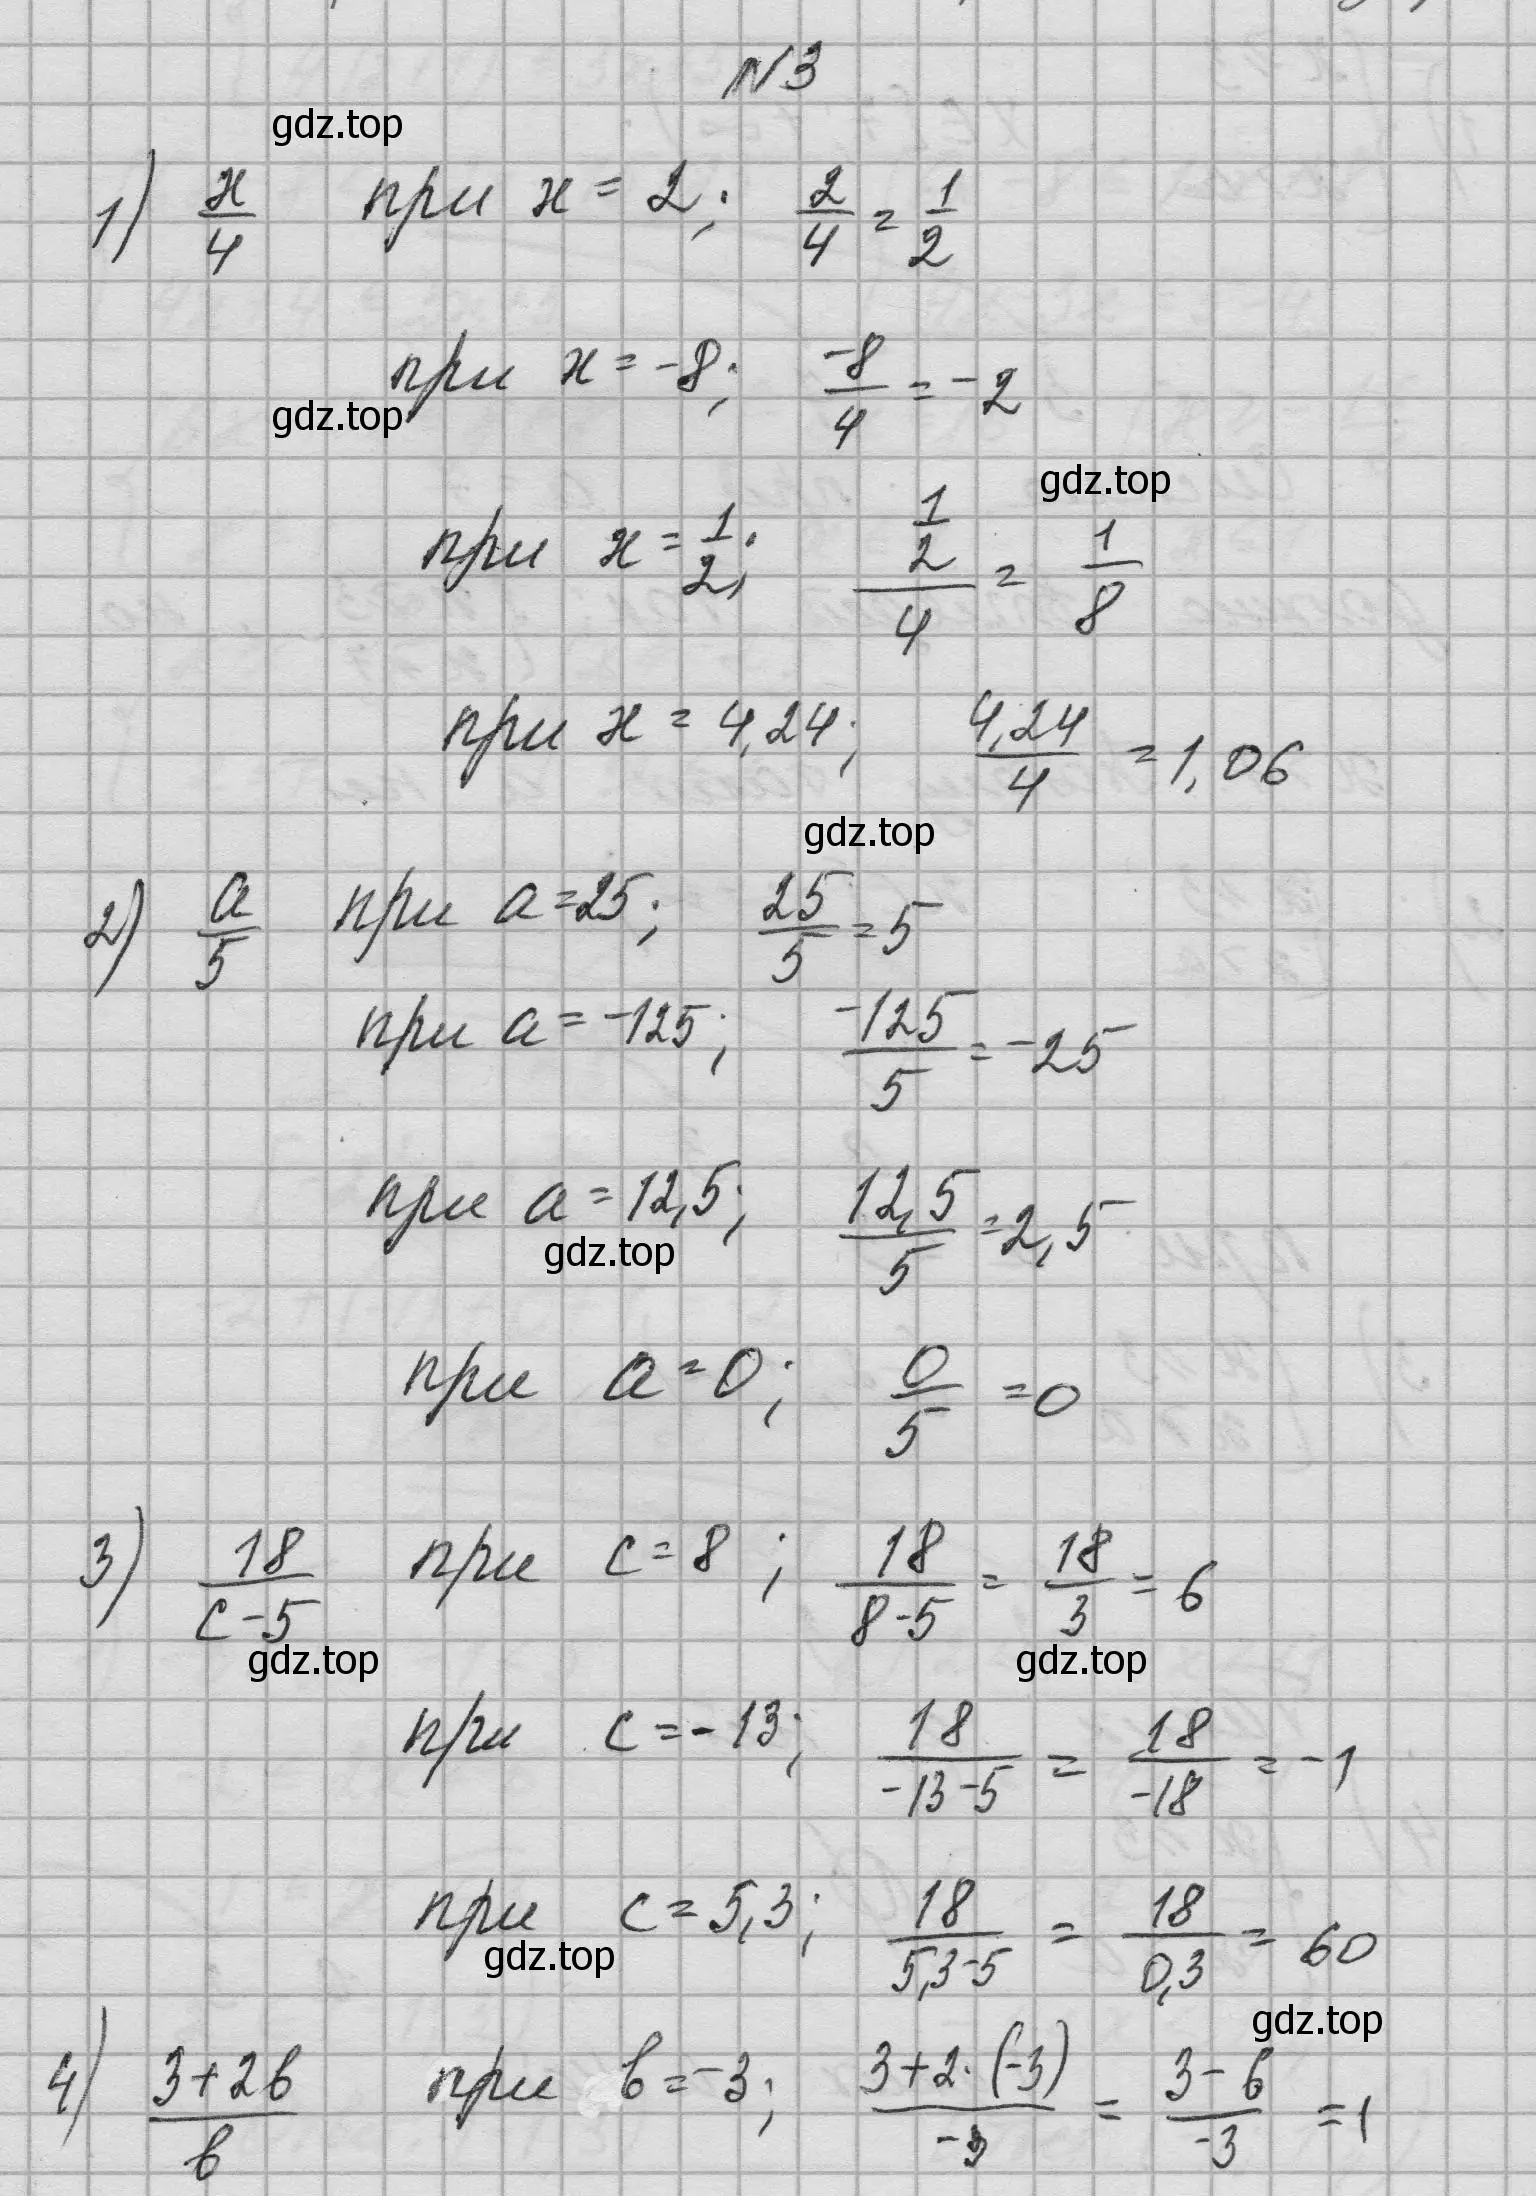 N3
gdz.top
1) x/4 при x = 2; 2/4 = 1/2
при x = -8; -8/4 = -2
gdz.top
gdz.top
при x = 1/2; (1/2)/4 = 1/8
при x = 4,24; 4,24/4 = 1,06
gdz.top
2) a/5 при a = 25; 25/5 = 5
при a = -125; -125/5 = -25
при a = 12,5; 12,5/5 = 2,5
gdz.top
при a = 0; 0/5 = 0
3) 18/(c-5) при c = 8; 18/(8-5) = 18/3 = 6
gdz.top gdz.top
при c = -13; 18/(-13-5) = 18/(-18) = -1
при c = 5,3; 18/(5,3-5) = 18/0,3 = 60
gdz.top
gdz.top
4) (3+2b)/b при b = -3; (3+2·(-3))/(-3) = (3-6)/(-3) = 1